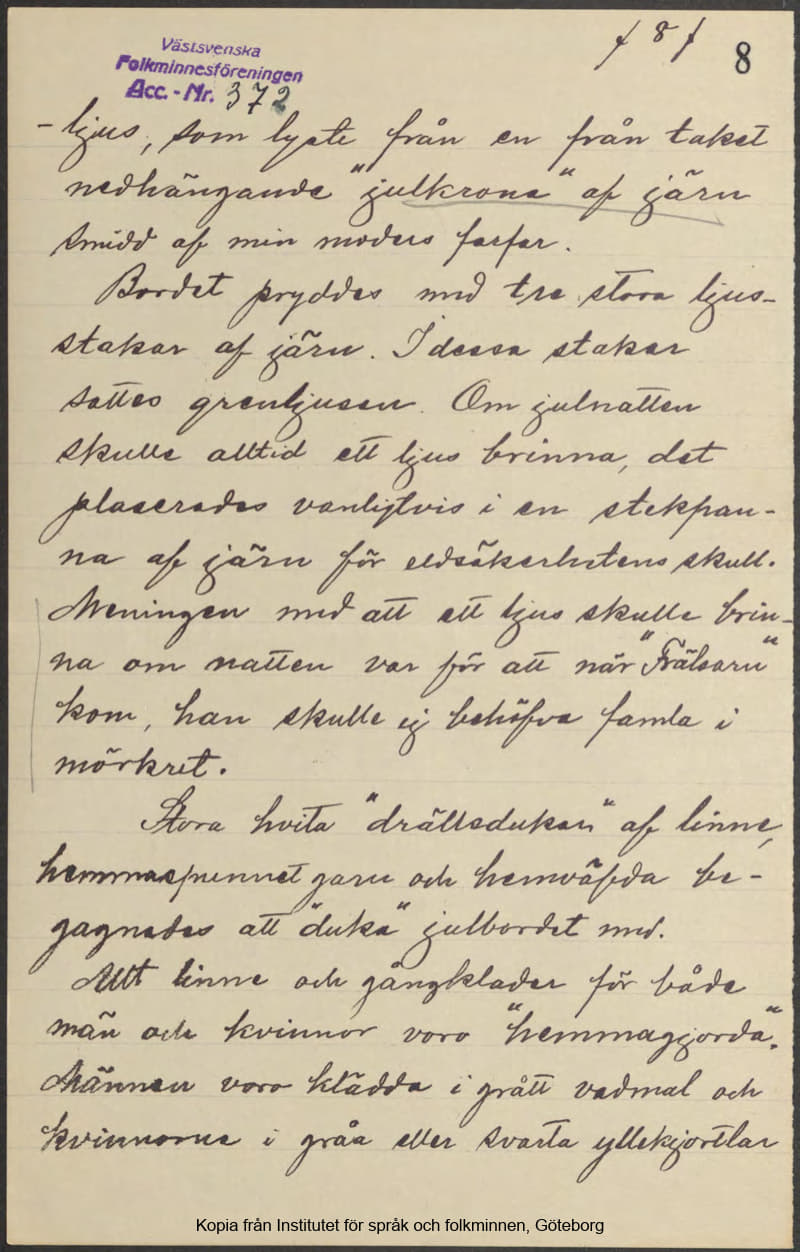 / 8 /
8
Västsvenska
Folkminnesföreningen
Acc. - Nr. 372
- ljus, som lyste från en från taket
nedhängande "julkrona" af järn
smidd af min moders farfar.
Bordet pryddes med tre stora ljus-
stakar af järn. I dessa stakar
sattes grenljusen. Om julnatten
skulle alltid ett ljus brinna, det
plaserades vanligtvis i en stekpan-
na af järn för eldsäkerhetens skull.
Meningen med att ett ljus skulle brin-
na om natten var för att när "Frälsarn"
kom, han skulle ej behöfva famla i
mörkret.
Stora hvita "drällsdukar" af linne,
hemmaspunnet garn och hemväfda be-
gagnades att "duka" julbordet med.
Allt linne och gångkläder för både
män och kvinnor voro "hemmagjorda".
Männen voro klädda i grått vadmal och
kvinnorna i gråa eller svarta yllekjortlar
Kopia från Institutet för språk och folkminnen, Göteborg